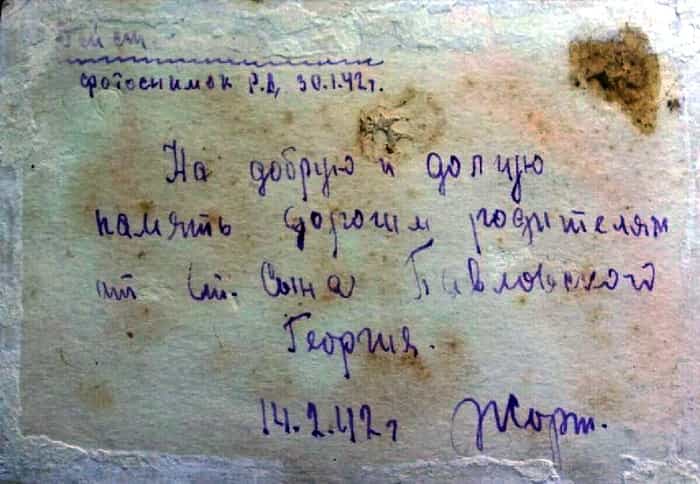 фотоснимок Р.В, 30.1.42г.
На добрую и долгую
память дорогим родителям
от ст. Сына Павловского
Георгия.
14.2.42г Жорж.